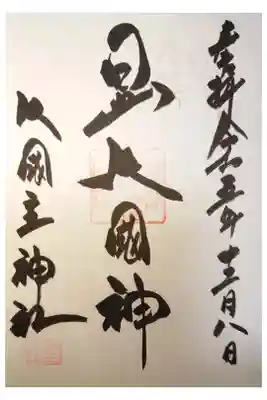 奉拝令和五年十二月八日
日出大國神
大國主神社